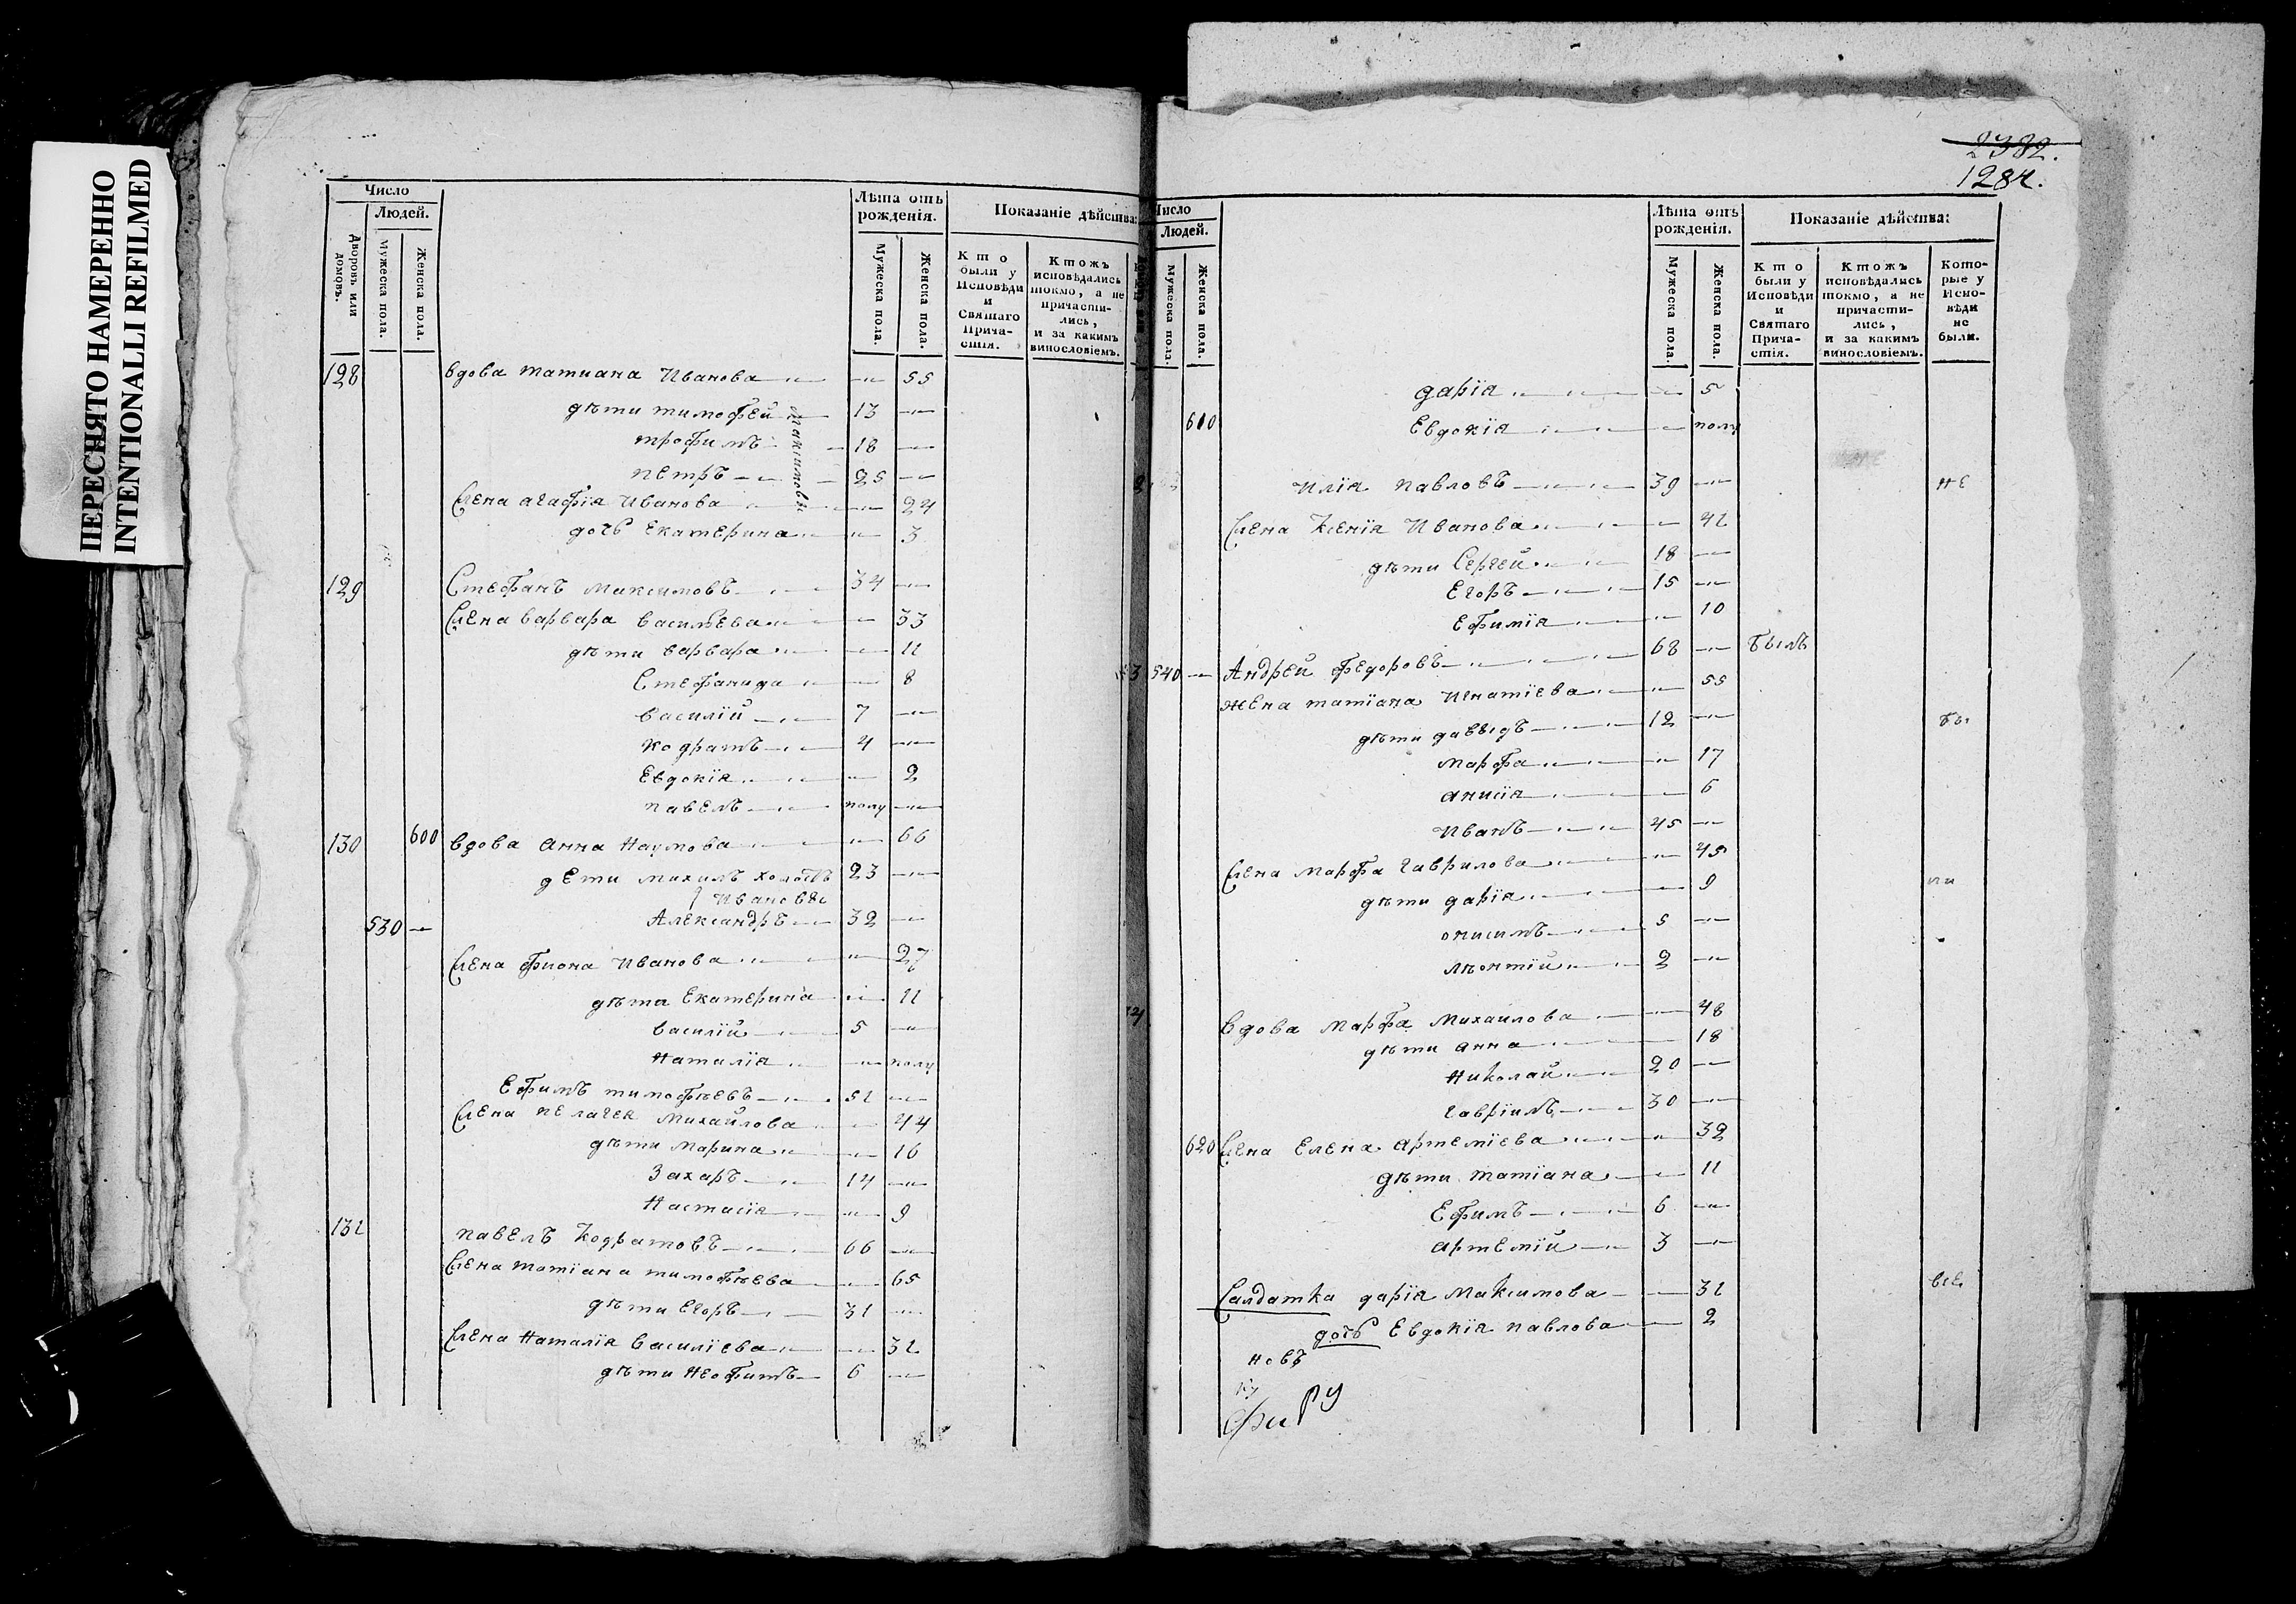 ПЕРЕСНЯТО НАМЕРЕННО
INTENTIONALLI REFILMED
Число
Людей.
Дворовъ или домовъ.
Мужеска пола.
Женска пола.
Лѣта отъ рожденія.
Мужеска пола.
Женска пола.
Показаніе дѣйства:
Кто были у Исповѣди и Святаго Прича-стія.
Ктожъ исповѣдались токмо, а не причасти-лись, и за какимъ винословіемъ.
128 вдова татиана Иванова 55
дѣти тимофей 13
Максимовы
трофимъ 18
петръ 25
Жена агафіа Иванова 24
дочь Екатерина 3
129 Стефанъ Максимовъ 34
Жена варвара василѣева 33
дѣти варвара 11
Стефанида 8
василій 7
кодратъ 4
Евдокіа 2
павелъ полу
130 600 вдова анна Наумова 66
дѣти михаилъ холостъ 23
Ивановы
530 Александръ 32
Жена фиона Иванова 27
дѣти Екатерина 11
василій 5
Наталіа полу
Ефимъ тимофѣевъ 51
Жена пелагея Михайлова 44
дѣти марина 16
Захаръ 14
Настасіа 9
131 павелъ Кодратовъ 66
Жена татіана тимофѣева 65
дѣти Егоръ 31
Жена Наталіа василіева 31
дѣти Неофитъ 6
2382.
1284.
Число
Людей.
Мужеска пола.
Женска пола.
Лѣта отъ рожденія.
Мужеска пола.
Женска пола.
Показаніе дѣйства:
Кто были у Исповѣди и Святаго Прича-стія.
Ктожъ исповѣдались токмо, а не причасти-лись, и за какимъ винословіемъ.
Кото-рые у Испо-вѣди не были.
даріа 5
610 Евдокіа полу
Иліа павловъ 39 не
Жена Ксеніа Иванова 41
дѣти Сергей 18
Егоръ 15
Ефиміа 10
540 Андрей федоровъ 68 былъ
жена татіана Игнатіева 55
дѣти давыдъ 12 бы
марфа 17
анисіа 6
Иванъ 45
Жена марфа гаврилова 45
дѣти даріа 9 ли
онисимъ 5
лѣонтій 2
вдова марфа михаилова 48
дѣти анна 18
Николай 20
гавріилъ 30
620 Жена Елена артеміева 32
дѣти татіана 11
Ефимъ 6
артемій 3
Салдатка даріа Максимова 31 все
дочь Евдокіа павлова 2
новъ